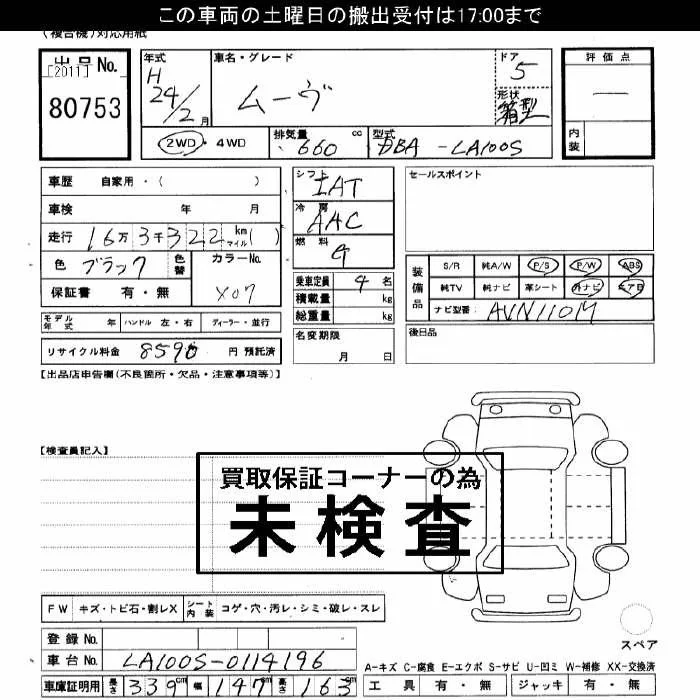 この車両の土曜日の搬出受付は17:00まで
(複合機)対応用紙
出品No.
[2011]
80753
年式
H
24/2月
車名・グレード
ムーヴ
ドア
5
形状
箱型
評価点
—
内装
2WD・4WD
排気量
660 cc
型式
DBA-LA100S
車歴 自家用・( )
車検 年 月
走行 16万3千322 km マイル( )
色 ブラック 色替 カラーNo.
保証書 有・無 X07
モデル年式 年 ハンドル 左・右 ディーラー・並行
リサイクル料金 8590 円 預託済
シフト
IAT
冷房
AAC
燃料
G
乗車定員 4 名
積載量 kg
総重量 kg
名変期限
月 日
セールスポイント
装備品
S/R 純A/W P/S P/W ABS
純TV 純ナビ 革シート 外ナビ エアB
ナビ型番 AVN110M
後日品
【出品店申告欄(不良箇所・欠品・注意事項等)】
【検査員記入】
買取保証コーナーの為
未検査
FW キズ・トビ石・割レX シート内装 コゲ・穴・汚レ・シミ・破レ・スレ
登録No.
車台No. LA100S-0114196
車庫証明用 長さ 339cm 幅 147cm 高さ 163cm
スペア
A-キズ C-腐食 E-エクボ S-サビ U-凹ミ W-補修 XX-交換済
工具 有・無 ジャッキ 有・無